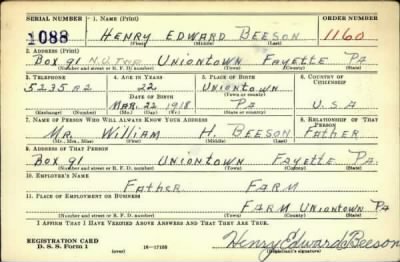 SERIAL NUMBER 1. NAME (Print) ORDER NUMBER
1088 HENRY EDWARD BEESON 1160
(First) (Middle) (Last)
2. ADDRESS (Print)
BOX 91 N.U. TWP. UNIONTOWN FAYETTE PA
(Number and street or R. F. D. number) (Town) (County) (State)
3. TELEPHONE 4. AGE IN YEARS 5. PLACE OF BIRTH 6. COUNTRY OF CITIZENSHIP
5235 R2 22 UNIONTOWN
DATE OF BIRTH (Town or county)
MAR. 22 1918 PA U.S.A
(Exchange) (Number) (Mo.) (Day) (Yr.) (State or country)
7. NAME OF PERSON WHO WILL ALWAYS KNOW YOUR ADDRESS 8. RELATIONSHIP OF THAT PERSON
MR. WILLIAM H. BEESON FATHER
(Mr., Mrs., Miss) (First) (Middle) (Last)
9. ADDRESS OF THAT PERSON
BOX 91 UNIONTOWN FAYETTE PA.
(Number and street or R. F. D. number) (Town) (County) (State)
10. EMPLOYER'S NAME
FATHER FARM
11. PLACE OF EMPLOYMENT OR BUSINESS
FARM UNIONTOWN PA
(Number and street or R. F. D. number) (Town) (County) (State)
I AFFIRM THAT I HAVE VERIFIED ABOVE ANSWERS AND THAT THEY ARE TRUE.
REGISTRATION CARD
D. S. S. Form 1 (over) 16—17105 Henry Edward Beeson
(Registrant's signature)